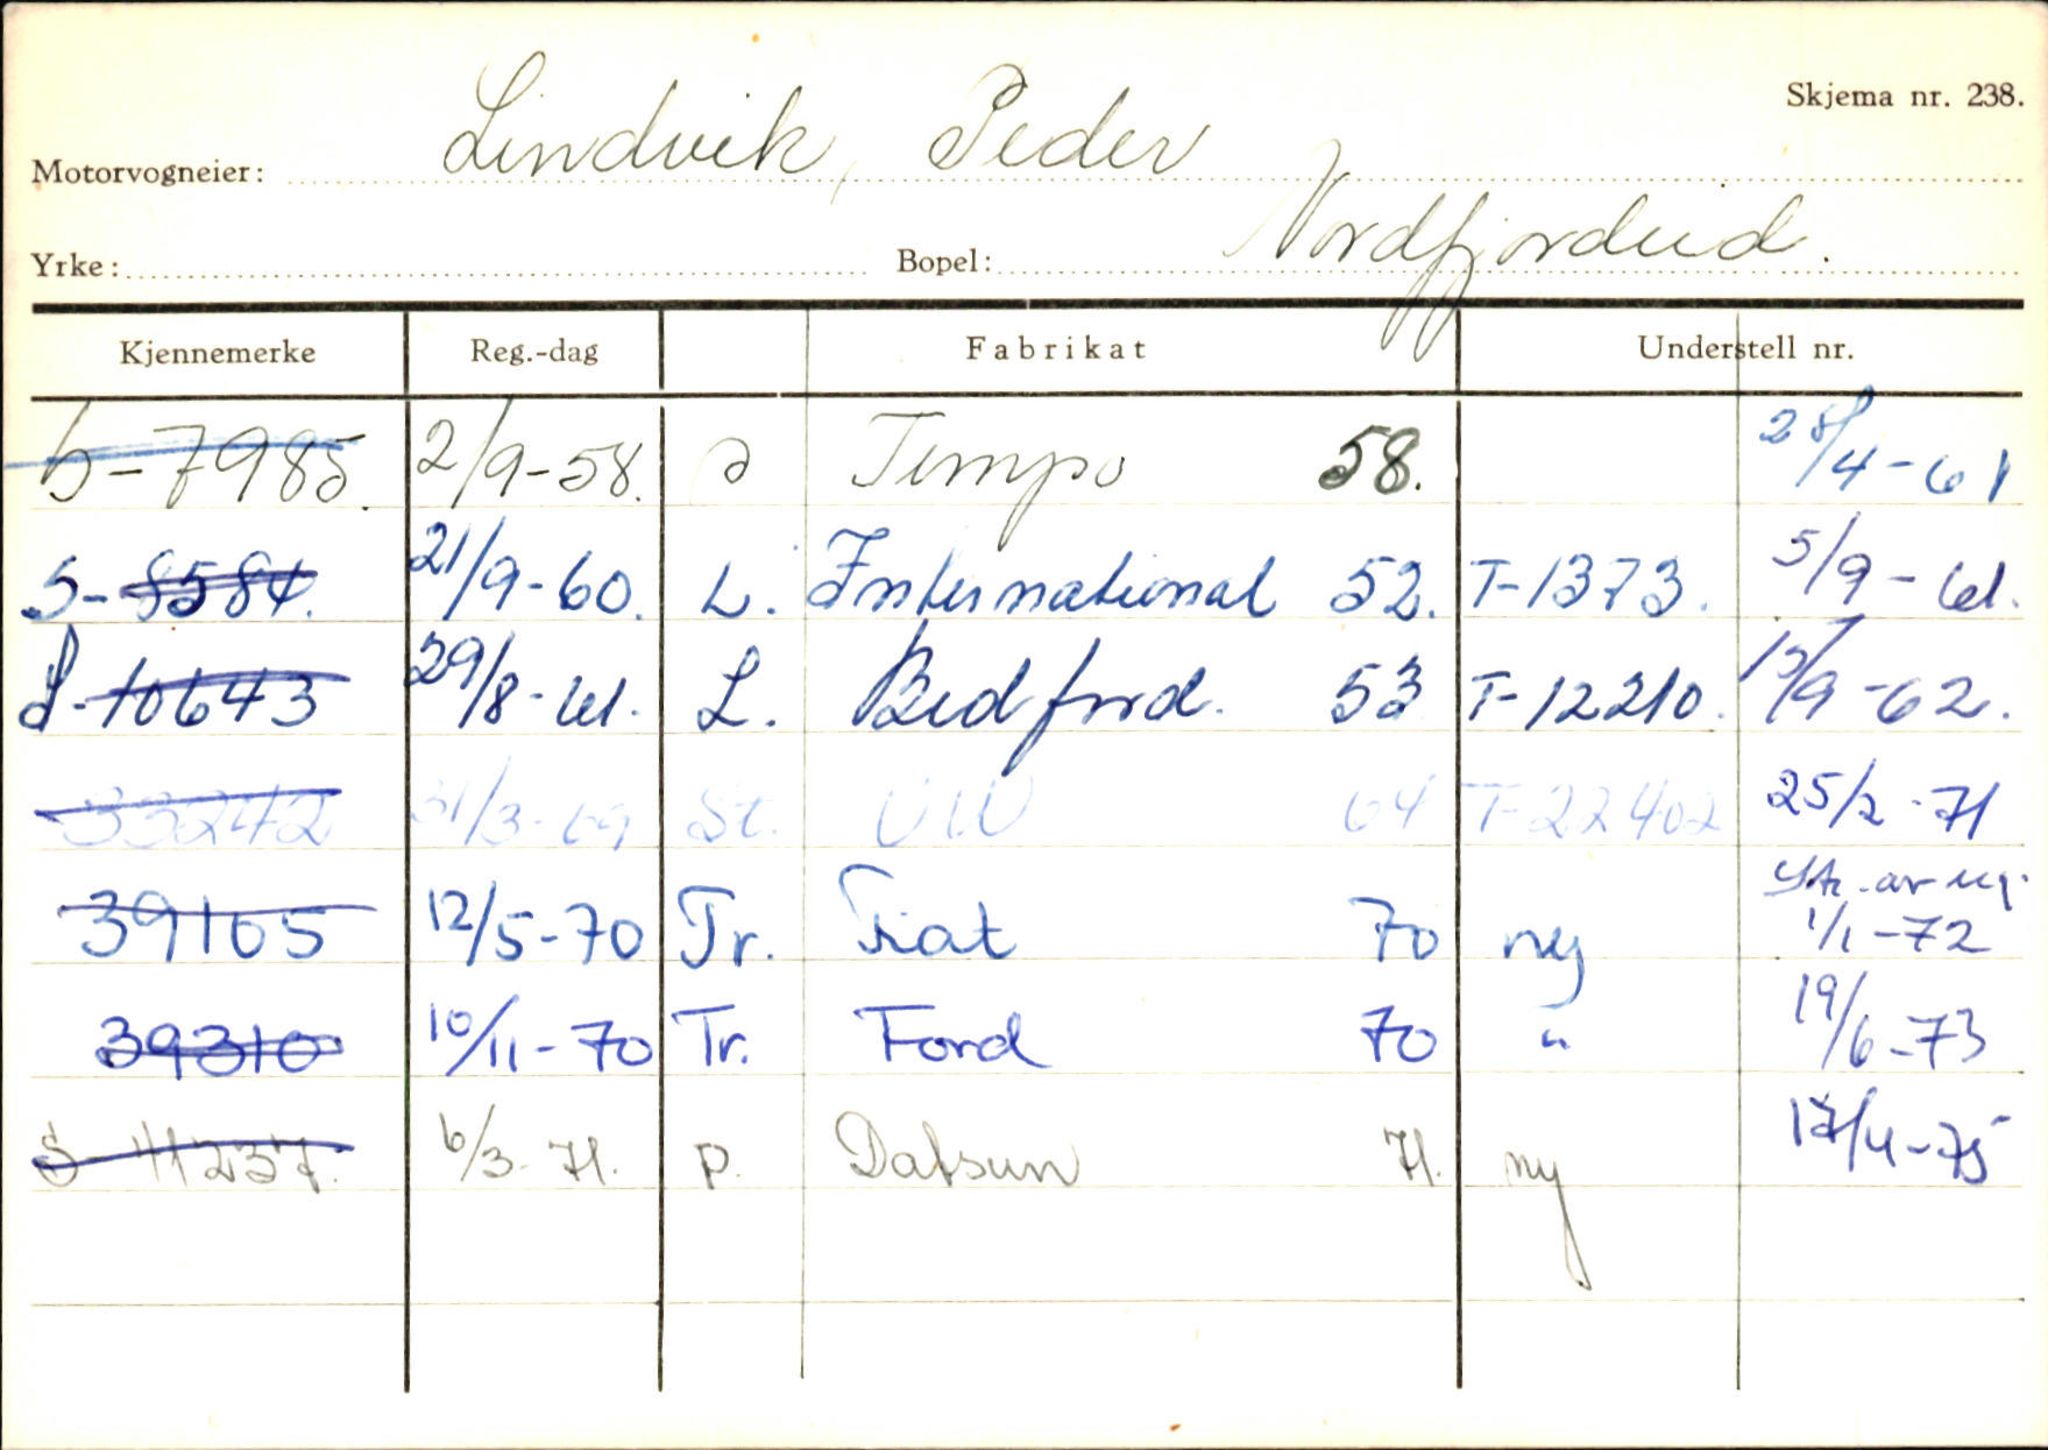 Skjema nr. 238.
Motorvogneier: Lindvik, Peder
Yrke: Bopel: Nordfjordeid.
Kjennemerke Reg.-dag Fabrikat Understell nr.
S-7985. 2/9-58. Tempo 58. 28/4-61
S-8584. 21/9-60. L. International 52. T-1373. 5/9-61.
S-10643 29/8-61. L. Bedford. 53 T-12210. 13/9-62.
33242 31/3-69 St. VW 64 T-22402 25/2-71
39165 12/5-70 Tr. Fiat 70 ny
1/1-72
39310 10/11-70 Tr. Ford 70 " 19/6-73
S-41237. 6/3-71. p. Datsun 71. ny 17/4-75